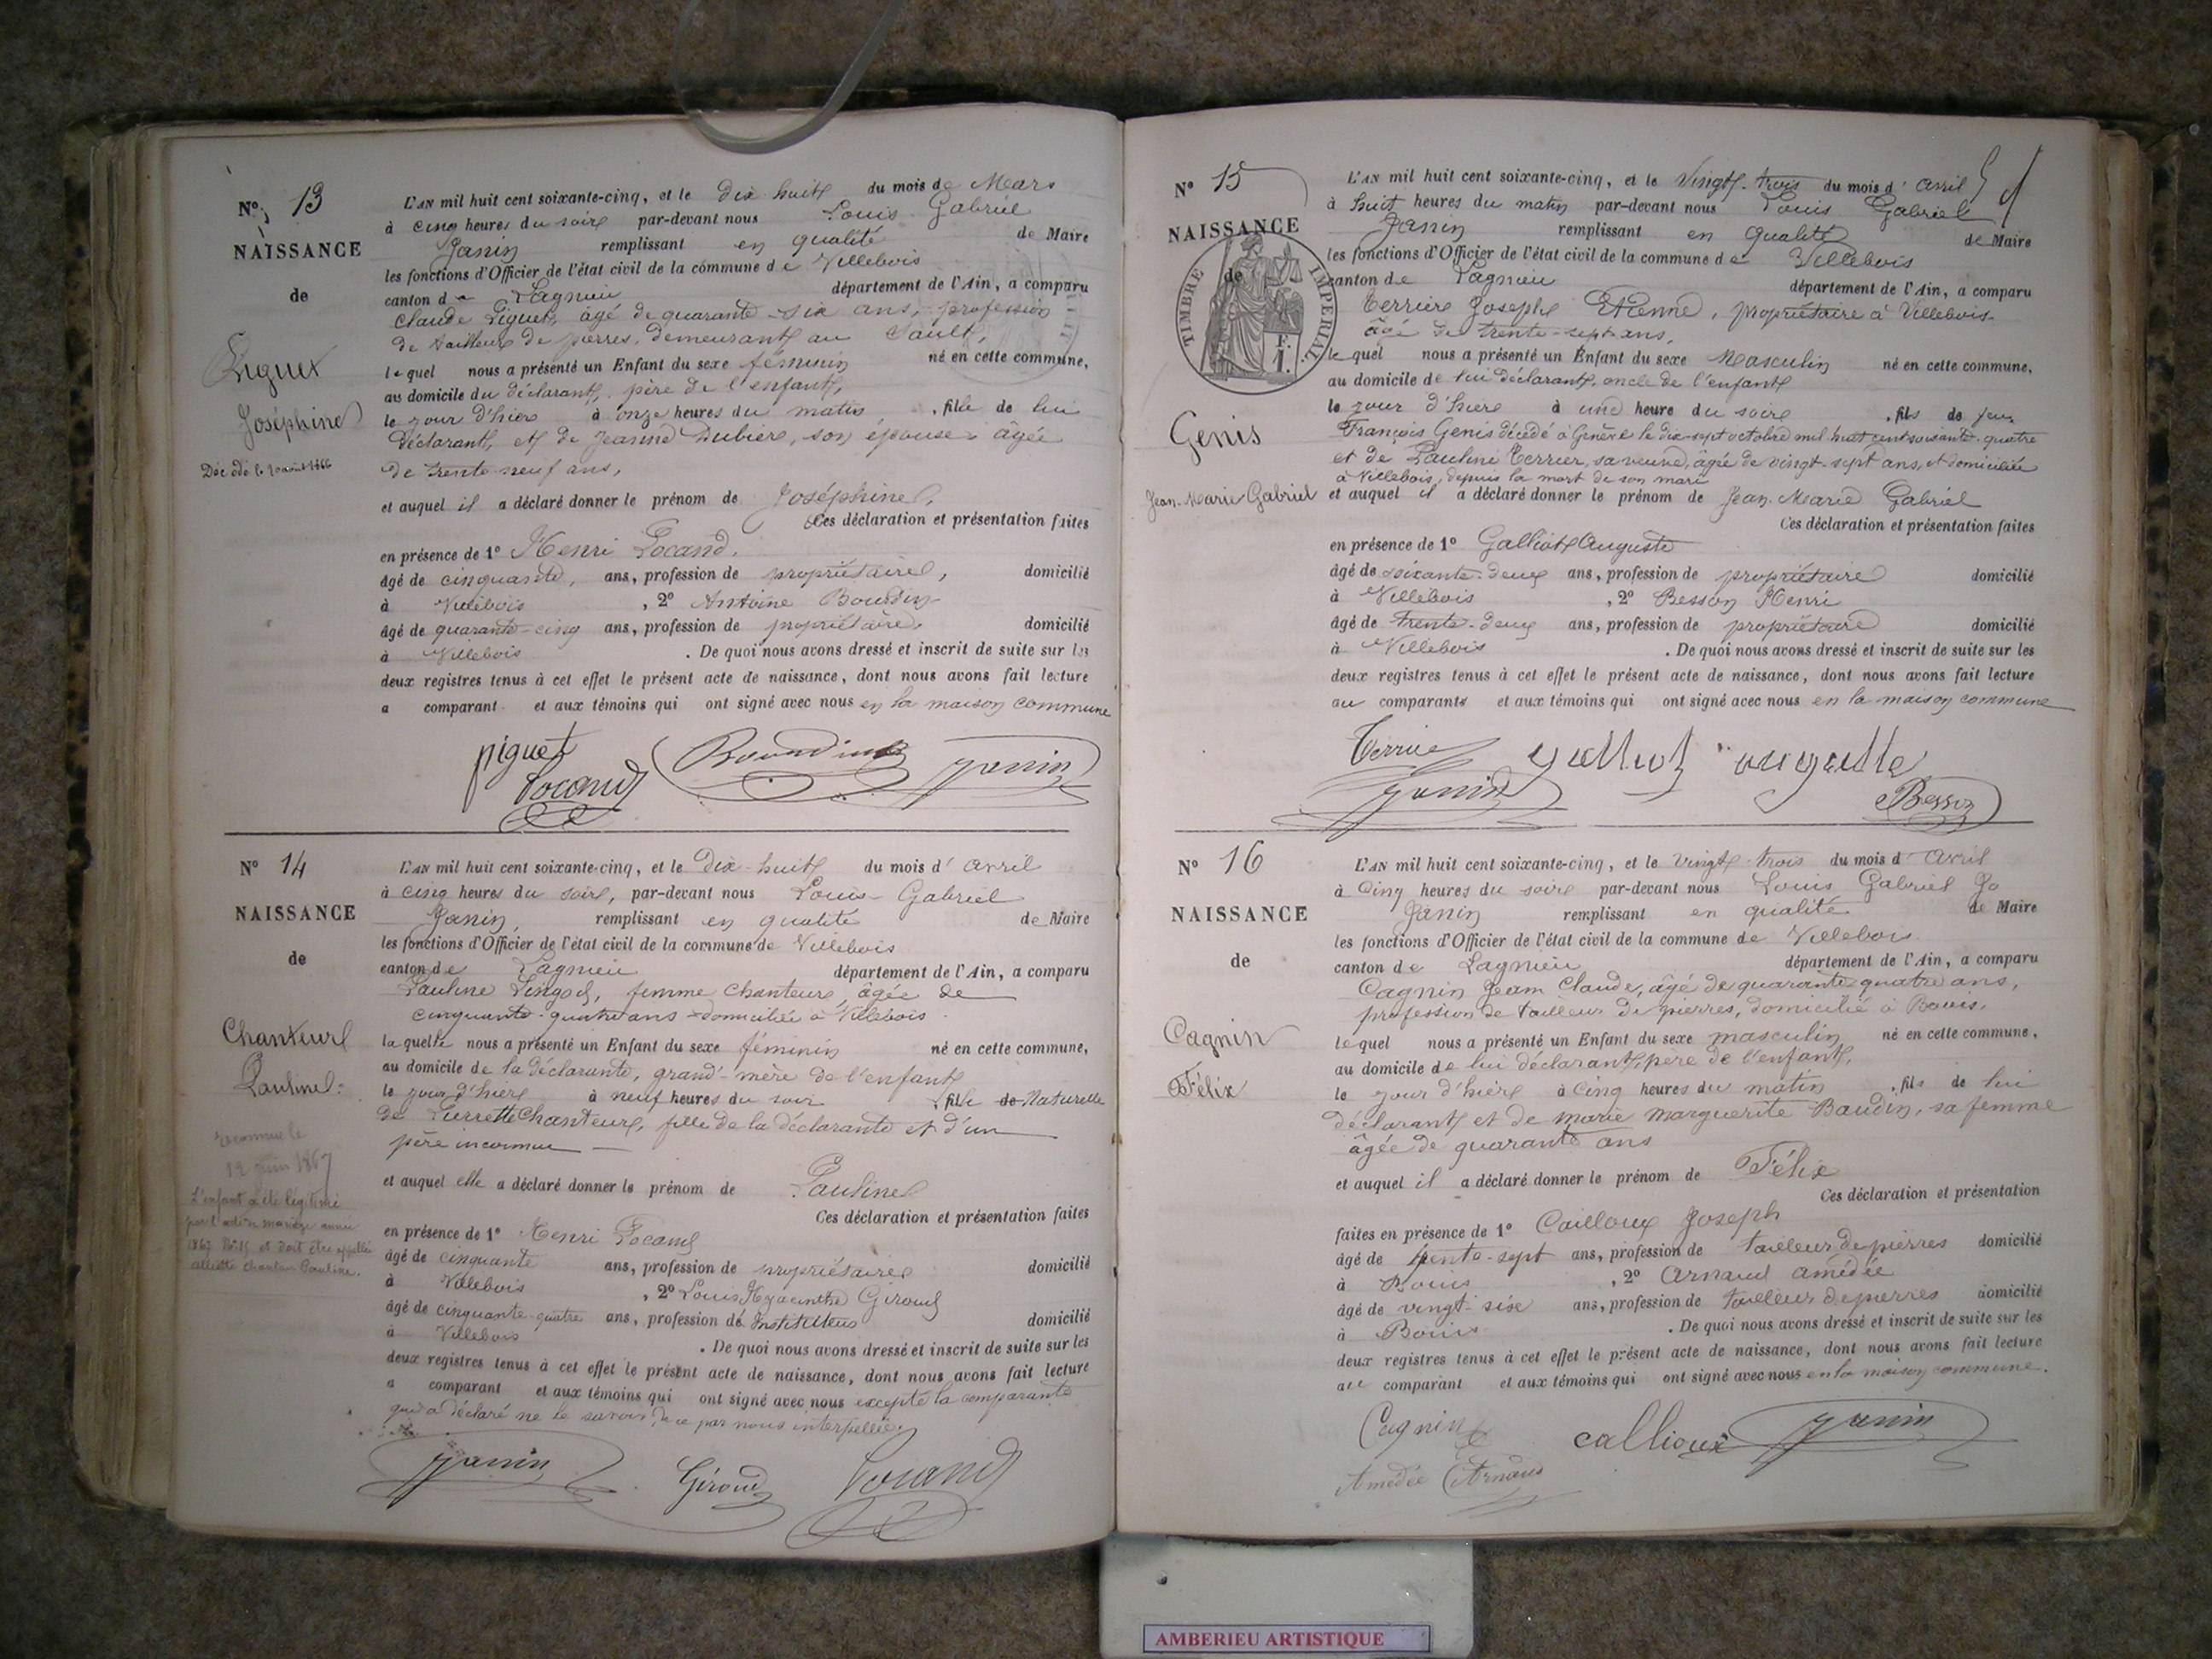 N° 13
NAISSANCE
de
Piguet
Joséphine
Décédé le 10 août 1866
L'AN mil huit cent soixante-cinq, et le Dix huit du mois de Mars
à cinq heures du soir par-devant nous Louis Gabriel
Janin remplissant en qualité de Maire
les fonctions d'Officier de l'état civil de la commune de Villebois
canton de Lagnieu département de l'Ain, a comparu
Claude Piguet, âgé de quarante-six ans, profession
de tailleur de pierres, demeurant au Sault,
lequel nous a présenté un Enfant du sexe féminin né en cette commune,
au domicile du déclarant, père de l'enfant,
le jour d'hier à onze heures du matin, fille de lui
déclarant, et de Jeanne Dubiere, son épouse âgée
de trente neuf ans,
et auquel il a déclaré donner le prénom de Joséphine,
Ces déclaration et présentation faites
en présence de 1° Henri Pocand,
âgé de cinquante, ans, profession de propriétaire, domicilié
à Villebois, 2° Antoine Bourdin
âgé de quarante-cinq ans, profession de propriétaire, domicilié
à Villebois. De quoi nous avons dressé et inscrit de suite sur les
deux registres tenus à cet effet le présent acte de naissance, dont nous avons fait lecture
a comparant et aux témoins qui ont signé avec nous en la maison commune
piguet Bourdin Janin
Pocand
N° 14
NAISSANCE
de
Chanteur
Pauline
reconnue le
12 juin 1867
L'enfant a été légitimé
par l'acte de mariage année
1867 et doit être appellée
Chanteur Pauline.
L'AN mil huit cent soixante-cinq, et le Dix-huit du mois d'avril
à cinq heures du soir, par-devant nous Louis-Gabriel
Janin, remplissant en qualité de Maire
les fonctions d'Officier de l'état civil de la commune de Villebois
canton de Lagnieu département de l'Ain, a comparu
Pauline Pingod, femme Chanteur, âgée de
cinquante-quatre ans domiciliée à Villebois
laquelle nous a présenté un Enfant du sexe féminin né en cette commune,
au domicile de la déclarante, grand'-mère de l'enfant
le jour d'hier à neuf heures du soir, fille de Naturelle
de Pierrette Chanteur, fille de la déclarante et d'un
père inconnu
et auquel elle a déclaré donner le prénom de Pauline
Ces déclaration et présentation faites
en présence de 1° Henri Pocand
âgé de cinquante ans, profession de propriétaire domicilié
à Villebois, 2° Louis Hyacinthe Giroud
âgé de cinquante-quatre ans, profession de Instituteur domicilié
à Villebois. De quoi nous avons dressé et inscrit de suite sur les
deux registres tenus à cet effet le présent acte de naissance, dont nous avons fait lecture
a comparant et aux témoins qui ont signé avec nous excepté la comparante
qui a déclaré ne le savoir, de ce par nous interpellée.
Janin Giroud Pocand
N° 15
NAISSANCE
de
TIMBRE IMPERIAL
1 F.
Genis
Jean-Marie Gabriel
L'AN mil huit cent soixante-cinq, et le Vingt-trois du mois d'avril
à huit heures du matin par-devant nous Louis Gabriel
Janin remplissant en qualité de Maire
les fonctions d'Officier de l'état civil de la commune de Villebois
canton de Lagnieu département de l'Ain, a comparu
Terrier Joseph Etienne, propriétaire à Villebois
âgé de trente-sept ans,
lequel nous a présenté un Enfant du sexe Masculin né en cette commune,
au domicile de lui déclarant, oncle de l'enfant
le jour d'hier à une heure du soir, fils de feu
François Genis décédé à Genève le dix-sept octobre mil huit cent soixante-quatre
et de Pauline Terrier, sa veuve, âgée de vingt-sept ans, et domiciliée
à Villebois, depuis la mort de son mari
et auquel il a déclaré donner le prénom de Jean-Marie Gabriel
Ces déclaration et présentation faites
en présence de 1° Galliot Auguste
âgé de soixante-deux ans, profession de propriétaire domicilié
à Villebois, 2° Besson Henri
âgé de trente-deux ans, profession de propriétaire domicilié
à Villebois. De quoi nous avons dressé et inscrit de suite sur les
deux registres tenus à cet effet le présent acte de naissance, dont nous avons fait lecture
au comparant et aux témoins qui ont signé avec nous en la maison commune
Terrier galliot auguste
Janin Besson
N° 16
NAISSANCE
de
Cagnin
Félix
L'AN mil huit cent soixante-cinq, et le vingt-trois du mois d'avril
à cinq heures du soir par-devant nous Louis Gabriel Ja
Janin remplissant en qualité de Maire
les fonctions d'Officier de l'état civil de la commune de Villebois
canton de Lagnieu département de l'Ain, a comparu
Cagnin Jean Claude, âgé de quarante quatre ans,
profession de tailleur de pierres, domicilié à Bouis,
lequel nous a présenté un Enfant du sexe masculin né en cette commune,
au domicile de lui déclarant, père de l'enfant,
le jour d'hier à cinq heures du matin, fils de lui
déclarant et de Marie Marguerite Baudin, sa femme
âgée de quarante ans
et auquel il a déclaré donner le prénom de Félix
Ces déclaration et présentation
faites en présence de 1° Cailloux Joseph
âgé de trente-sept ans, profession de tailleur de pierres domicilié
à Bouis, 2° Arnaud Amédée
âgé de vingt-six ans, profession de tailleur de pierres domicilié
à Bouis. De quoi nous avons dressé et inscrit de suite sur les
deux registres tenus à cet effet le présent acte de naissance, dont nous avons fait lecture
au comparant et aux témoins qui ont signé avec nous en la maison commune.
Cagnin callioux Janin
Amédée Arnaud
AMBERIEU ARTISTIQUE